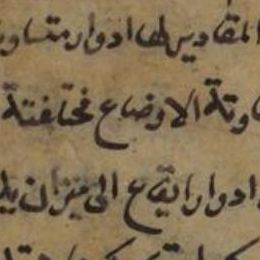 المقادير لها ادوار متساو
وتة الاوضاع مختلفة
ادوار ايقاع الى ميزان يد